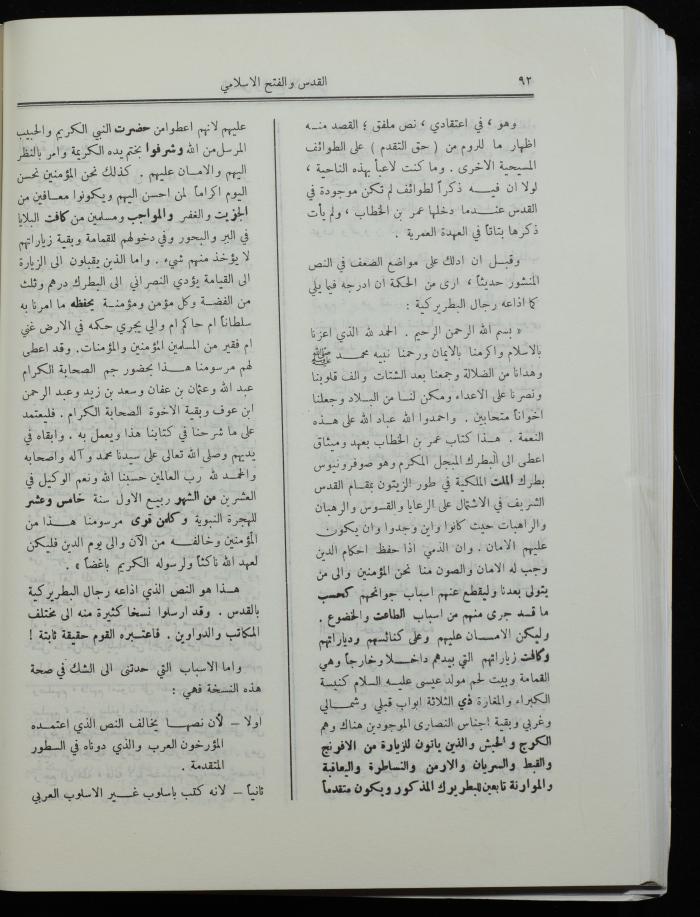 ٩٢
القدس والفتح الاسلامي
وهو ، في اعتقادي ، نص ملفق ؛ القصد منه
اظهار ما للروم من ( حق التقدم ) على الطوائف
المسيحية الاخرى . وما كنت لأعبأ بهذه الناحية ،
لولا ان فيه ذكراً لطوائف لم تكن موجودة في
القدس عندما دخلها عمر بن الخطاب ، ولم يأت
ذكرها بتاتاً في العهدة العمرية .
وقبل ان ادلك على مواضع الضعف في النص
المنشور حديثاً ، ارى من الحكمة ان ادرجه فيما يلي
كما اذاعه رجال البطريركية :
« بسم الله الرحمن الرحيم . الحمد لله الذي اعزنا
بالاسلام واكرمنا بالايمان ورحمنا نبيه محمد ﷺ
وهدانا من الضلالة وجمعنا بعد الشتات والف قلوبنا
ونصرنا على الاعداء ومكن لنا من البلاد وجعلنا
اخواناً متحابين . واحمدوا الله عباد الله على هذه
النعمة . هذا كتاب عمر بن الخطاب بعهد وميثاق
اعطى الى البطرك المبجل المكرم وهو صوفرونيوس
بطرك الملت الملكية في طور الزيتون بمقام القدس
الشريف في الاشتمال على الرعايا والقسوس والرهبان
والراهبات حيث كانوا واين وجدوا وان يكون
عليهم الامان . وان الذمي اذا حفظ احكام الدين
وجب له الامان والصون منا نحن المؤمنين والى من
يتولى بعدنا وليقطع عنهم اسباب جوانحهم كحسب
ما قد جرى منهم من اسباب الطاعت والخضوع .
وليكن الامان عليهم وعلى كنائسهم ودياراتهم
وكافت زياراتهم التي بيدهم داخلا وخارجاً وهي
القمامة وبيت لحم مولد عيسى عليه السلام كنيسة
الكبراء والمغارة ذي الثلاثة ابواب قبلي وشمالي
وغربي وبقية اجناس النصارى الموجودين هناك وهم
الكرج والحبش والذين يأتون للزيارة من الافرنج
والقبط والسريان والارمن والنساطرة واليعاقبة
والموارنة تابعين للبطريرك المذكور ويكون متقدماً
عليهم لانهم اعطوا من حضرت النبي الكريم والحبيب
المرسل من الله وشرفوا بختم يده الكريمة وامر بالنظر
اليهم والامان عليهم . كذلك نحن المؤمنين نحسن
اليوم اكراماً لمن احسن اليهم ويكونوا معافين من
الجزيت والغفر والمواجب ومسلمين من كافت البلايا
في البر والبحور وفي دخولهم للقمامة وبقية زياراتهم
لا يؤخذ منهم شيء . واما الذين يقبلون الى الزيارة
الى القيامة يؤدي النصراني الى البطرك درهم وثلث
من الفضة وكل مؤمن ومؤمنة يحفظه ما امرنا به
سلطاناً ام حاكم ام والي يجري حكمه في الارض غني
ام فقير من المسلمين المؤمنين والمؤمنات . وقد اعطى
لهم مرسومنا هذا بحضور جم الصحابة الكرام
عبد الله وعثمان بن عفان وسعد بن زيد وعبد الرحمن
ابن عوف وبقية الاخوة الصحابة الكرام . فليعتمد
على ما شرحنا في كتابنا هذا ويعمل به . وابقاه في
يديهم وصلى الله تعالى على سيدنا محمد وآله واصحابه
والحمد لله رب العالمين حسبنا الله ونعم الوكيل في
العشرين من الشهر ربيع الاول سنة خامس وعشر
للهجرة النبوية وكلمن قوى مرسومنا هذا من
المؤمنين وخالفه من الآن والى يوم الدين فليكن
لعهد الله ناكثاً ولرسوله الكريم باغضاً » .
هذا هو النص الذي اذاعه رجال البطريركية
بالقدس . وقد ارسلوا نسخا كثيرة منه الى مختلف
المكاتب والدواوين . فاعتبره القوم حقيقة ثابتة !
واما الاسباب التي حدتنى الى الشك في صحة
هذه النسخة فهي :
اولا – لأن نصها يخالف النص الذي اعتمده
المؤرخون العرب والذي دوناه في السطور
المتقدمة .
ثانياً – لانه كتب باسلوب غير الاسلوب العربي